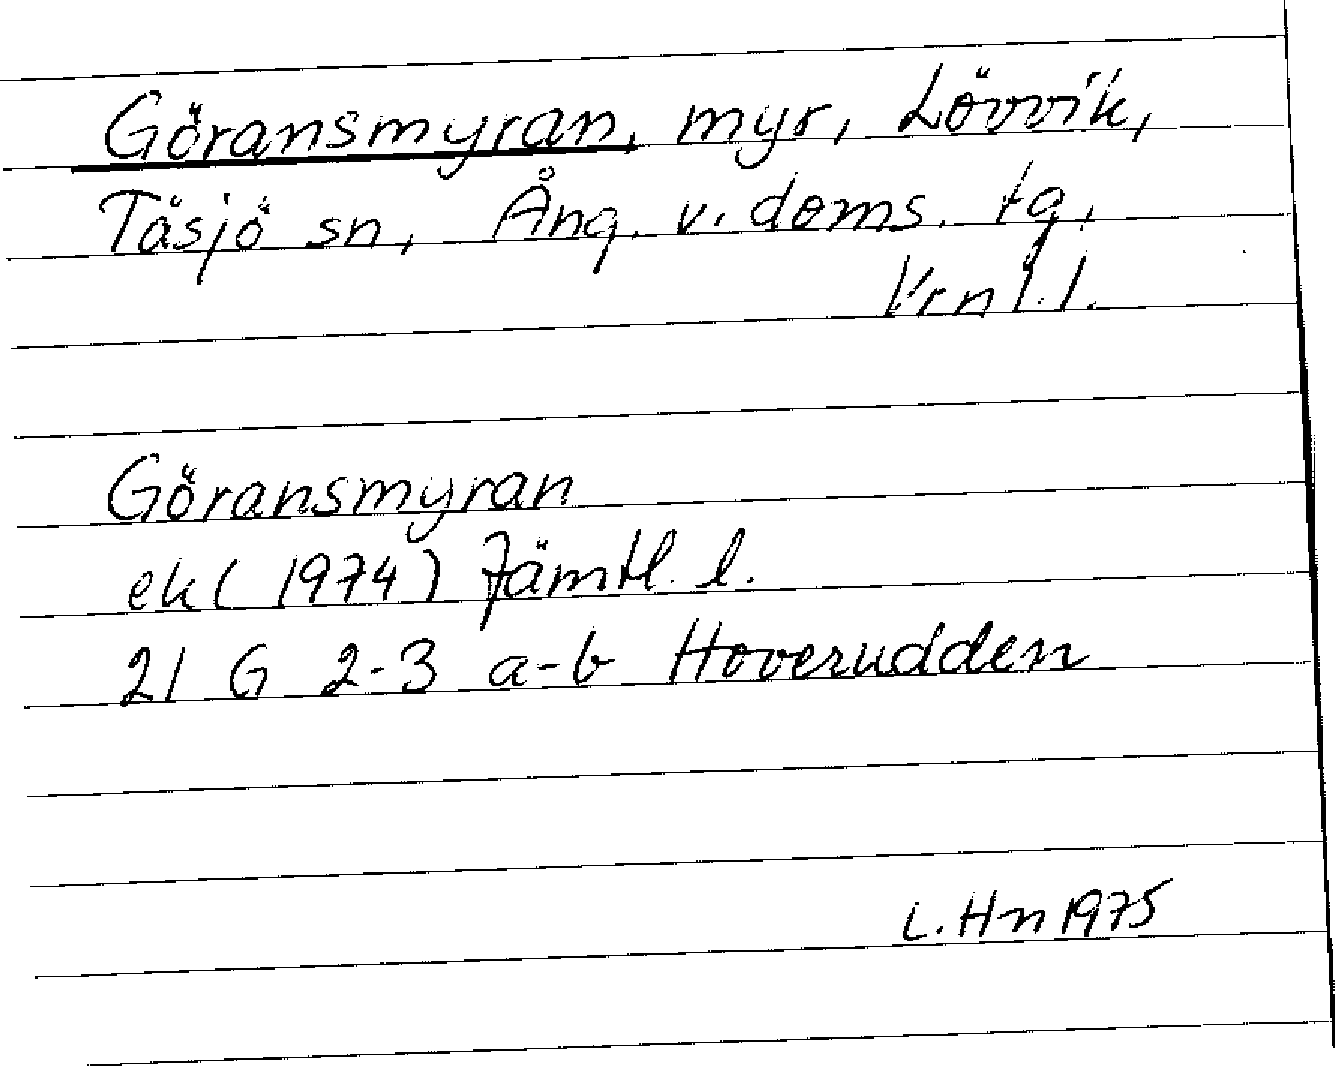 Göransmyran, myr, Lövvik,
Tåsjö sn, Ång. v. doms. tg,
Vrnl.l.
Göransmyran
ek (1974) Jämtl. l.
21 G 2-3 a-b Hoverudden
L. Hn 1975